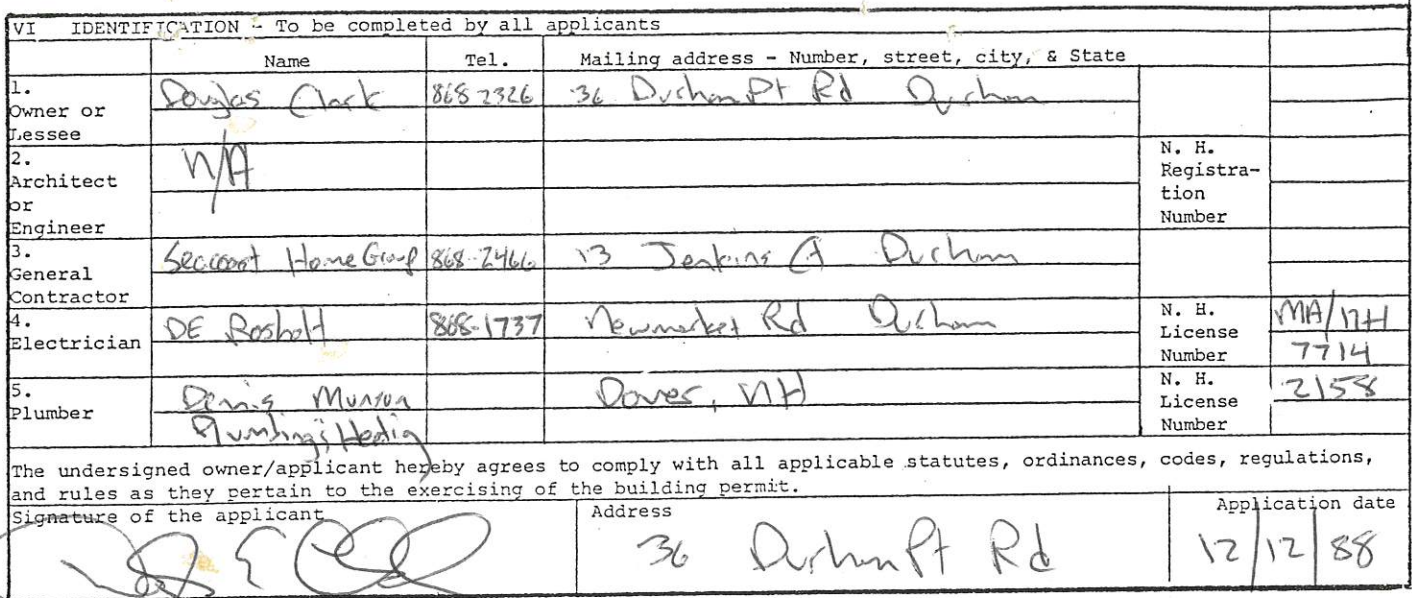 VI IDENTIFICATION - To be completed by all applicants
Name Tel. Mailing address - Number, street, city, & State
1. Owner or Lessee Douglas Clark 868-2326 36 Durham Pt Rd Durham
2. Architect or Engineer N/A N. H. Registra-tion Number
3. General Contractor Seacoast Home Group 868-2466 13 Jenkins Ct Durham
4. Electrician DE Rosholt 868-1737 Newmarket Rd Durham N. H. License Number MA/NH 7714
5. Plumber Dennis Munson Plumbing & Heating Dover, NH N. H. License Number 2158
The undersigned owner/applicant hereby agrees to comply with all applicable statutes, ordinances, codes, regulations,
and rules as they pertain to the exercising of the building permit.
Signature of the applicant Address Application date
36 Durham Pt Rd 12/12/88